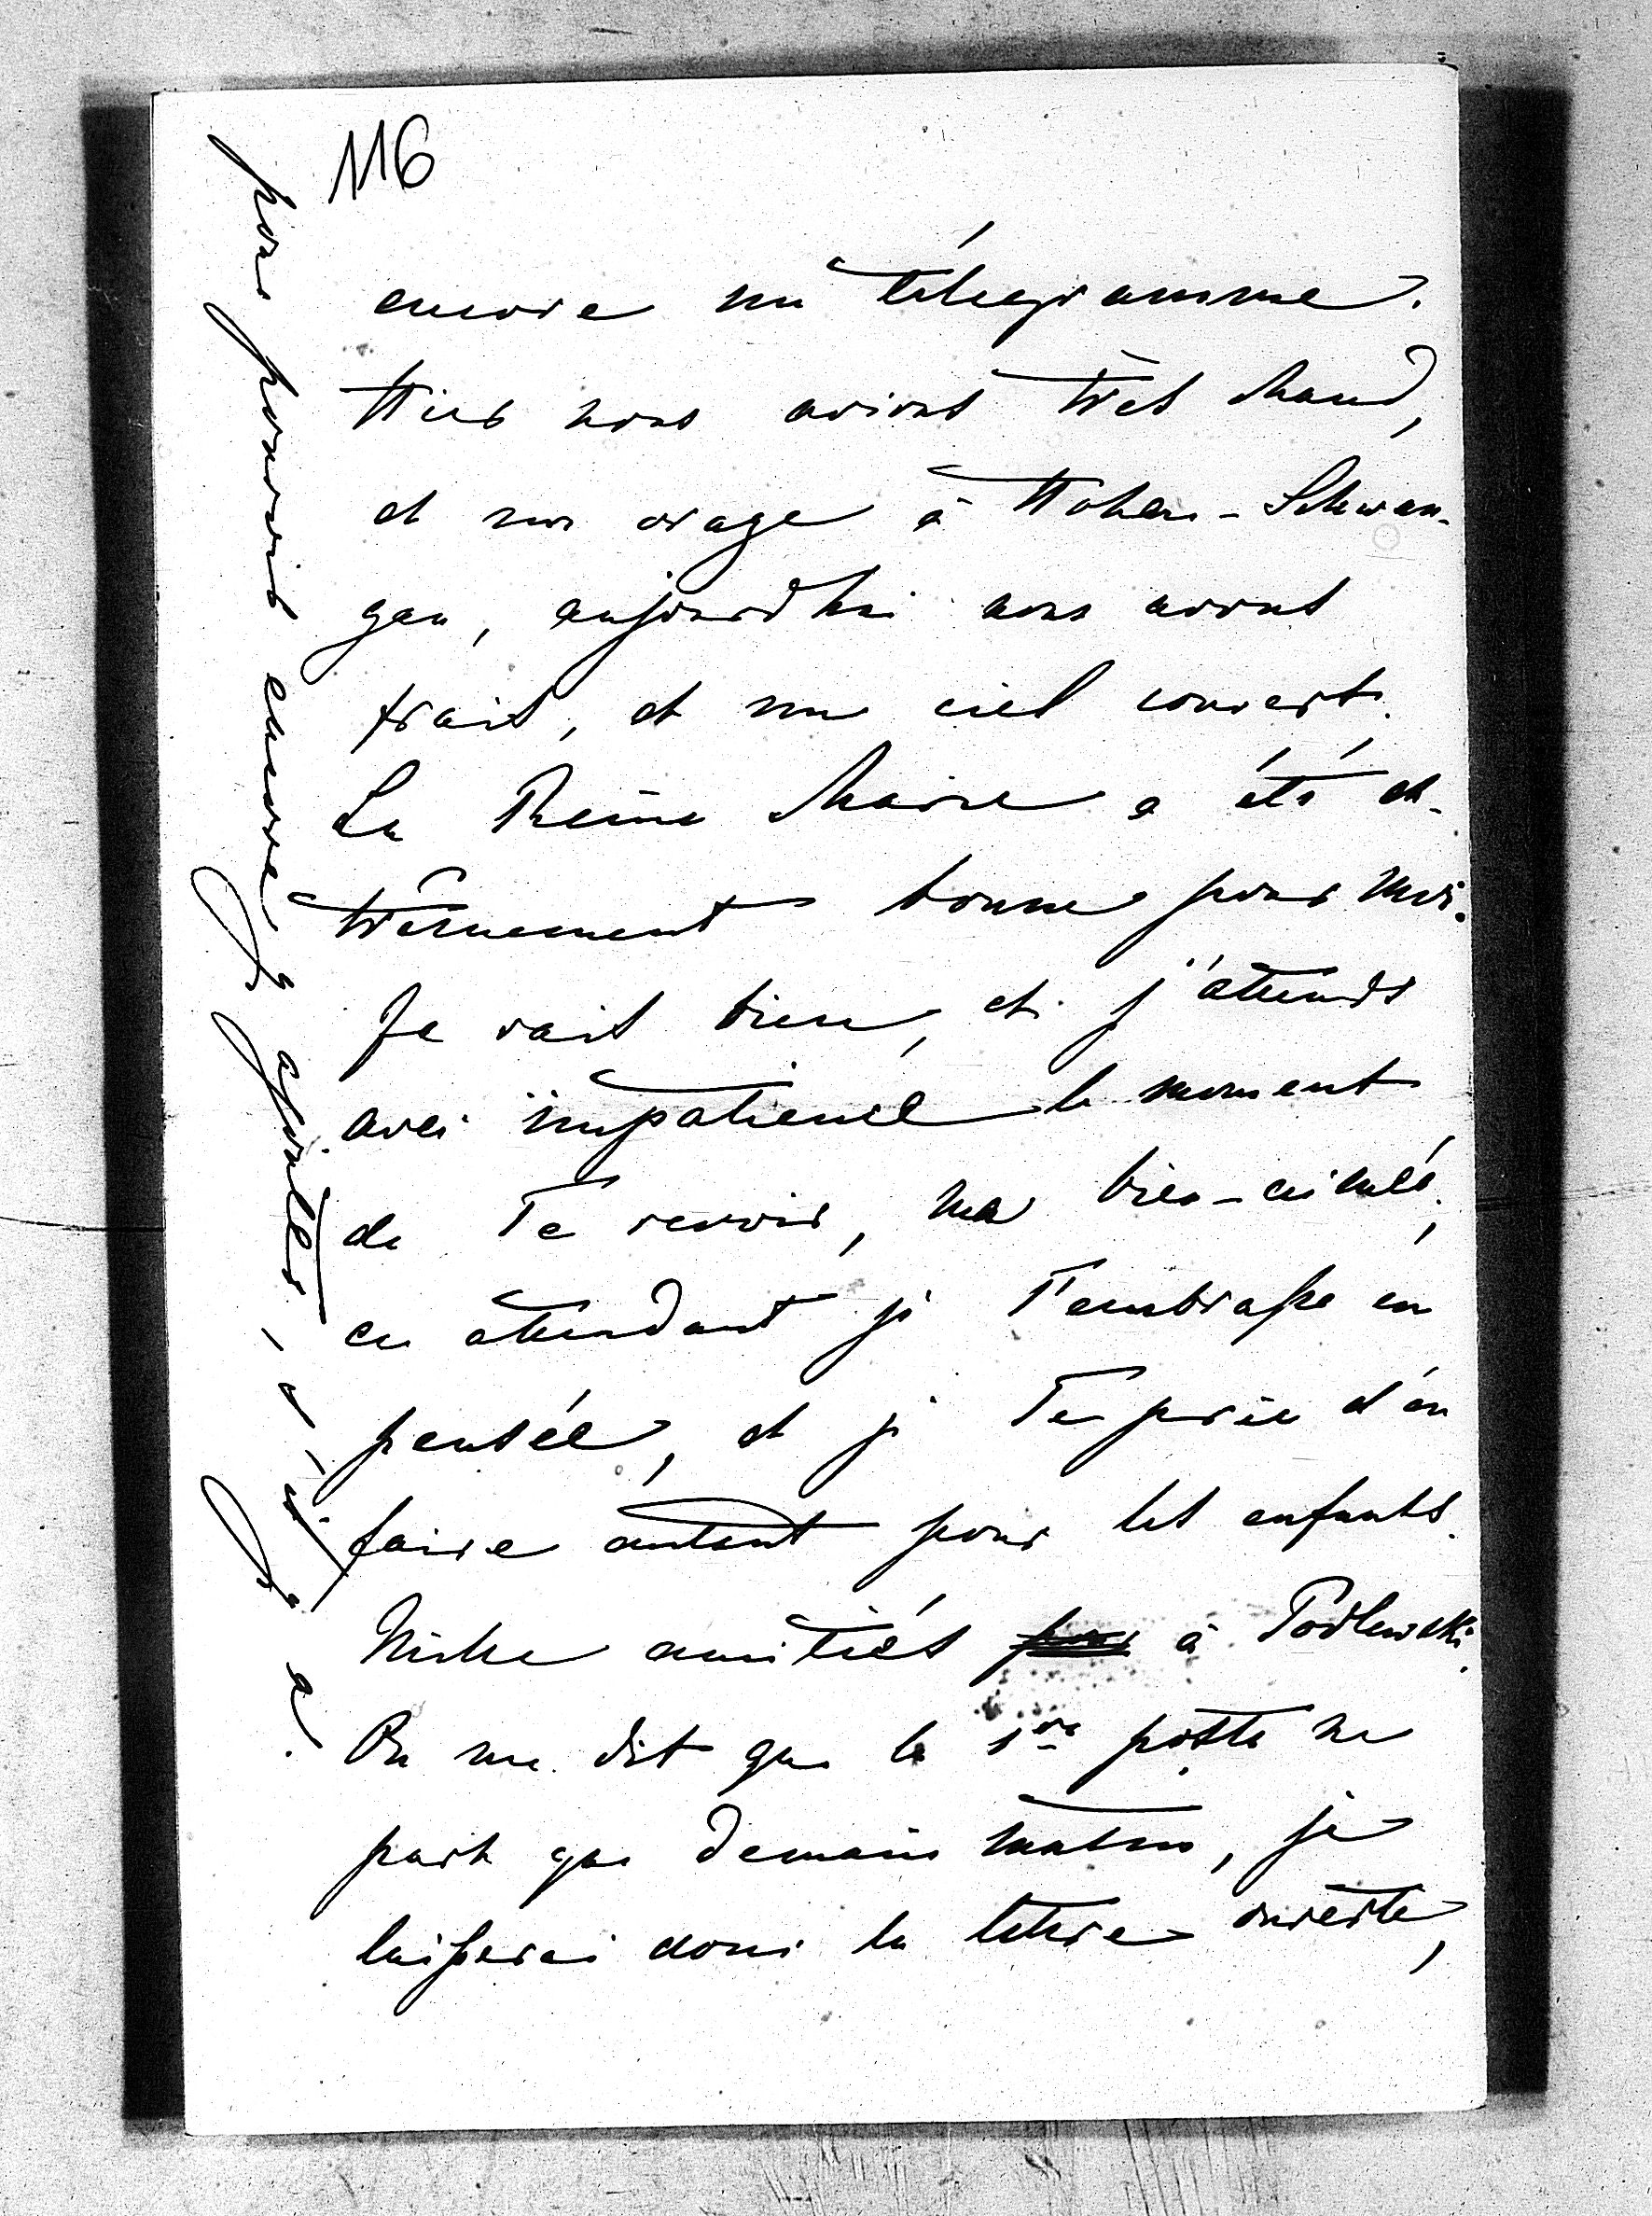 116
encore un télegramme.
Hier nous avions très chaud,
et un orage à Hohen-Schwan-
gau, aujourdhui nous avons
frais, et un ciel couvert.
La Reine Marie a été ex-
trêmement bonne pour moi.
Je vais bien, et j'attends
avec impatience le moment
de Te revoir, ma bien-aimée,
en attendant je T'embrasse en
pensée, et je Te prie d'en
faire autant pour les enfants.
Mille amitiés à Podlewski.
On me dit que la 1re poste ne
part que demain matin, je
laisserai donc la lettre ouverte,
pour pouvoir encore y ajouter, s'il y a